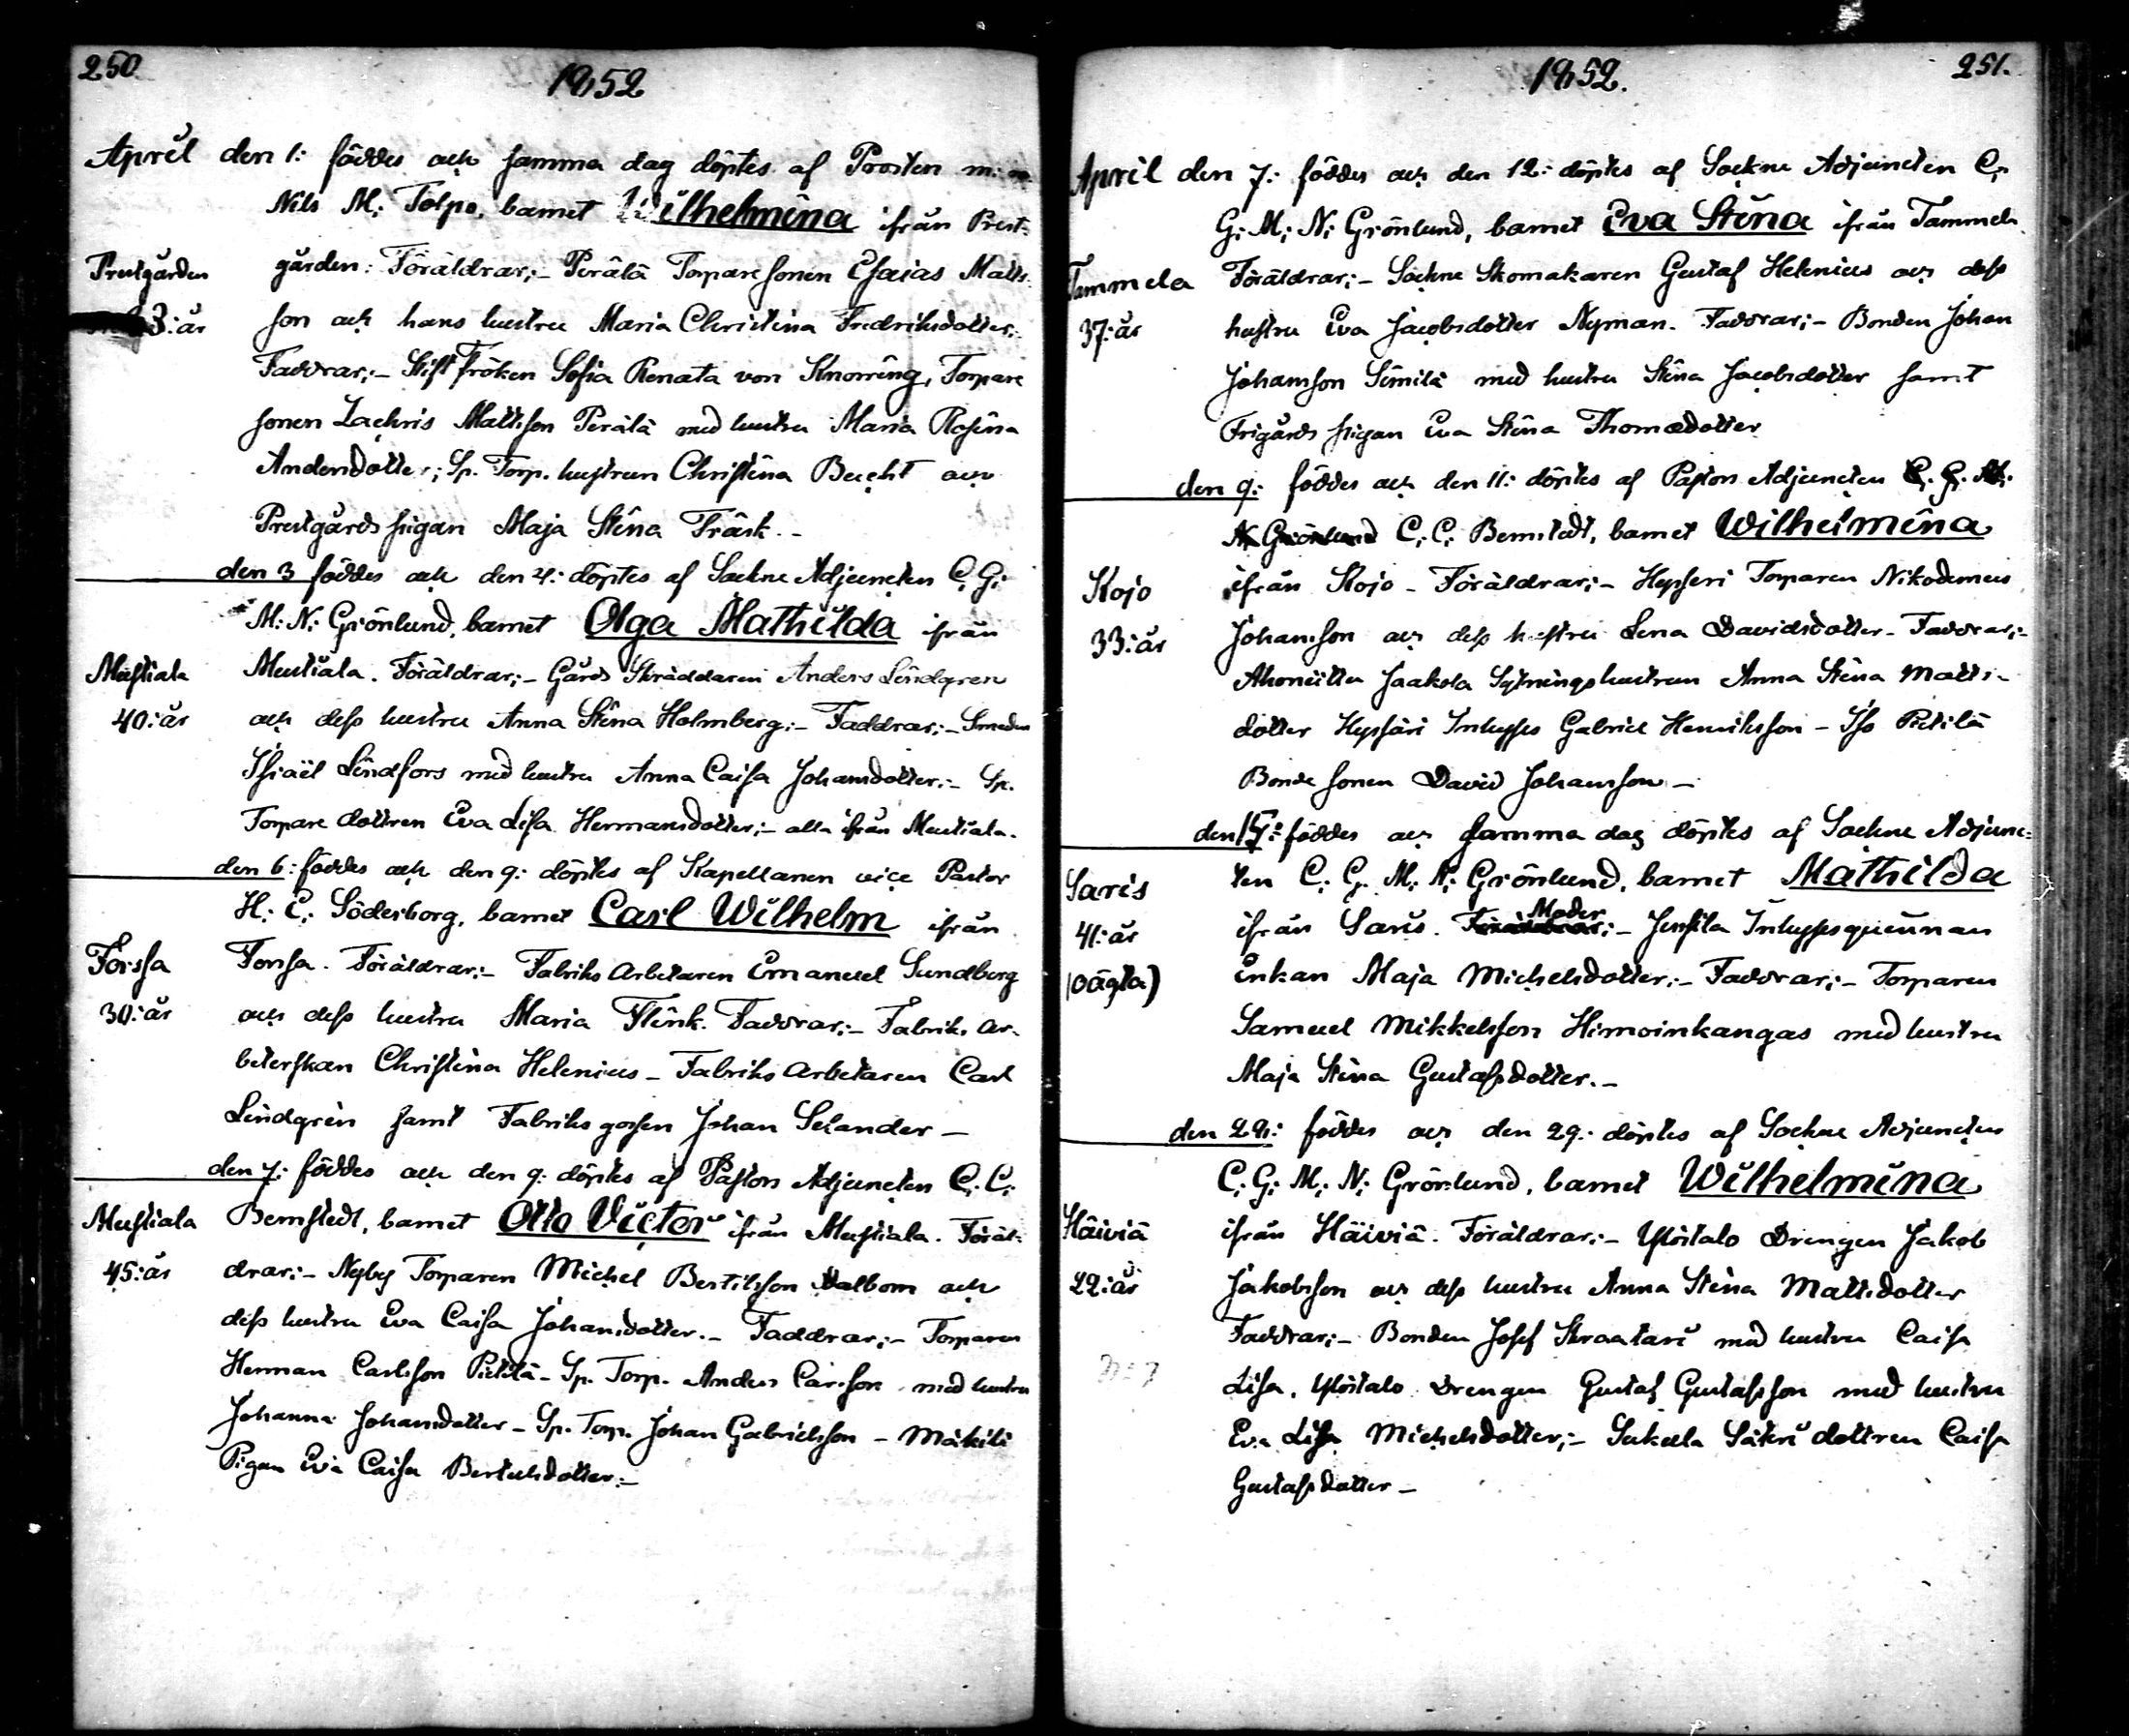 250
1852
April den 1: föddes och samma dag döptes af Prosten m. m.
Nils M: Tolpo, barnet Wilhelmina ifrån Prest-
Prestgården
gården: Föräldrar:- Perälä Torpare sonen Esaias Matts-
3: år
son och hans hustru Maria Christina Fredriksdotter:
Faddrar:- Stift Fröken Sofia Renata von Knorring, Torpare
sonen Zachris Mattsson Perälä med hustru Maria Rosina
Andersdotter; Sp. Torp. hustrun Christina Becht och
Prestgårds pigan Maja Stina Träsk.-
den 3 föddes och den 4: döptes af Sockne Adjuncten C. G:
M: N: Grönlund, barnet Olga Mathilda ifrån
Mustiala
Mustiala. Föräldrar:- Gårds Skräddaren Anders Lindgren
40: år
och dess hustru Anna Stina Holmberg:- Faddrar:- Smeden
Israël Lindfors med hustru Anna Caisa Johansdotter:- Sp.
Torpare dottren Eva Lisa Hermansdotter:- alla ifrån Mustiala.
den 6: föddes och den 9: döptes af Kapellanen vice Pastor
H: C: Söderborg, barnet Carl Wilhelm ifrån
Forssa
Forssa. Föräldrar:- Fabriks Arbetaren Emanuel Sundberg
30: år
och dess hustru Maria Flink. Faddrar:- Fabriks Ar-
beterskan Christina Helenius - Fabriks Arbetaren Carl
Lindgrén samt Fabriks gossen Johan Selander -
den 7: föddes och den 9: döptes af Pastors Adjuncten C. C:
Mustiala
Bernstedt, barnet Otto Victor ifrån Mustiala. Föräl-
45: år
drar:- Nyby Torparen Michel Bertilsson Dalbom och
dess hustru Eva Caisa Johansdotter.- Faddrar:- Torparen
Herman Carlsson Pietilä - Sp. Torp. Anders Carlsson med hustru
Johanna Johansdotter - Sp. Torp. Johan Gabrielsson - Mäkilä
Pigan Eva Caisa Bertilsdotter:-
1852.
251.
April den 7: föddes och den 12: döptes af Sockne Adjuncten C.
G: M: N: Grönlund, barnet Eva Stina ifrån Tammela
Tammela
Föräldrar:- Sockne Skomakaren Gustaf Helenius och dess
37: år
hustru Eva Jacobsdotter Nyman. Faddrar:- Bonden Johan
Johansson Simila med hustru Stina Jacobsdotter samt
Frigårds pigan Eva Stina Thomasdotter
den 9: föddes och den 11: döptes af Pastors Adjuncten C. G. M.
N: Grönlund C: C: Bernstedt, barnet Wilhelmina
Kojo
ifrån Kojo - Föräldrar:- Hypseri Torparen Nikodemus
33: år
Johansson och dess hustru Lena Davidsdotter - Faddrar:-
Jaakola Sytningshustrun Anna Stina Matts-
dotter Hypsäri Inhyses Gabriel Henriksson - Iso Pietilä
Bonde sonen David Johansson -
den 15: föddes och samma dag döptes af Sockne Adjunc-
ten C: G. M: N: Grönlund, barnet Mathilda
Saris
41: år
ifrån Saris. Föräldrar Moder:- Jussila Inhysesqvinnan
(oägta)
Enkan Maja Michelsdotter:- Faddrar:- Torparen
Samuel Mikkelsson Himoinkangas med hustru
Maja Stina Gustafsdotter.-
den 29: föddes och den 29: döptes af Sockne Adjuncten
C: G: M: N: Grönlund, barnet Wilhelmina
Häiviä
ifrån Häiviä. Föräldrar:- Ylöstalo Drengen Jakob
22: år
Jakobsson och dess hustru Anna Stina Mattsdotter
Faddrar:- Bonden Josef Skraatari med hustru Caisa
Lisa, Ylöstalo Drengen Gustaf Gustafsson med hustru
Eva Lisa Michelsdotter:- Sukula Säteri dottren Caisa
Gustafsdotter -